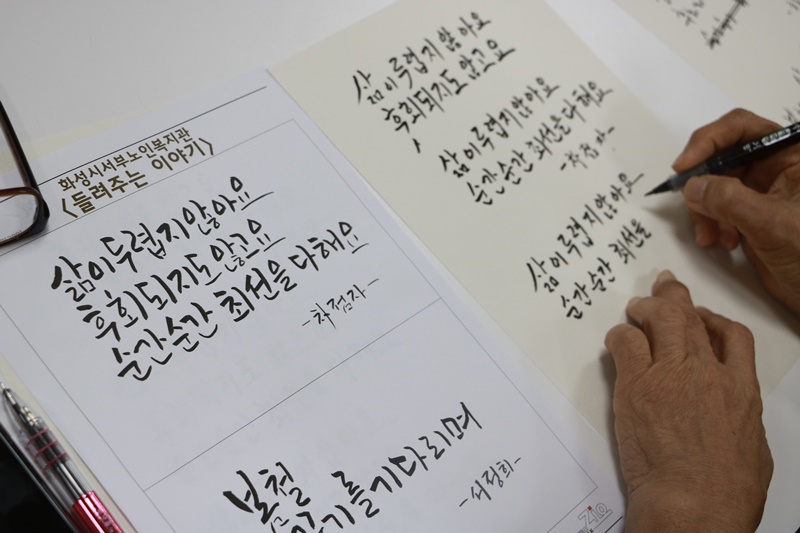 화성시서부노인복지관
<들려주는 이야기>
삶이 두렵지 않아요
후회되지도 않고요
순간순간 최선을 다해요
-차점자-
봄철
를 기다리며
-서정희-
삶이 두렵지 않아요
후회되지도 않고요
삶이 두렵지 않아요
순간순간 최선을 다해요
-차점자-
삶이 두렵지 않아요
순간순간 최선을